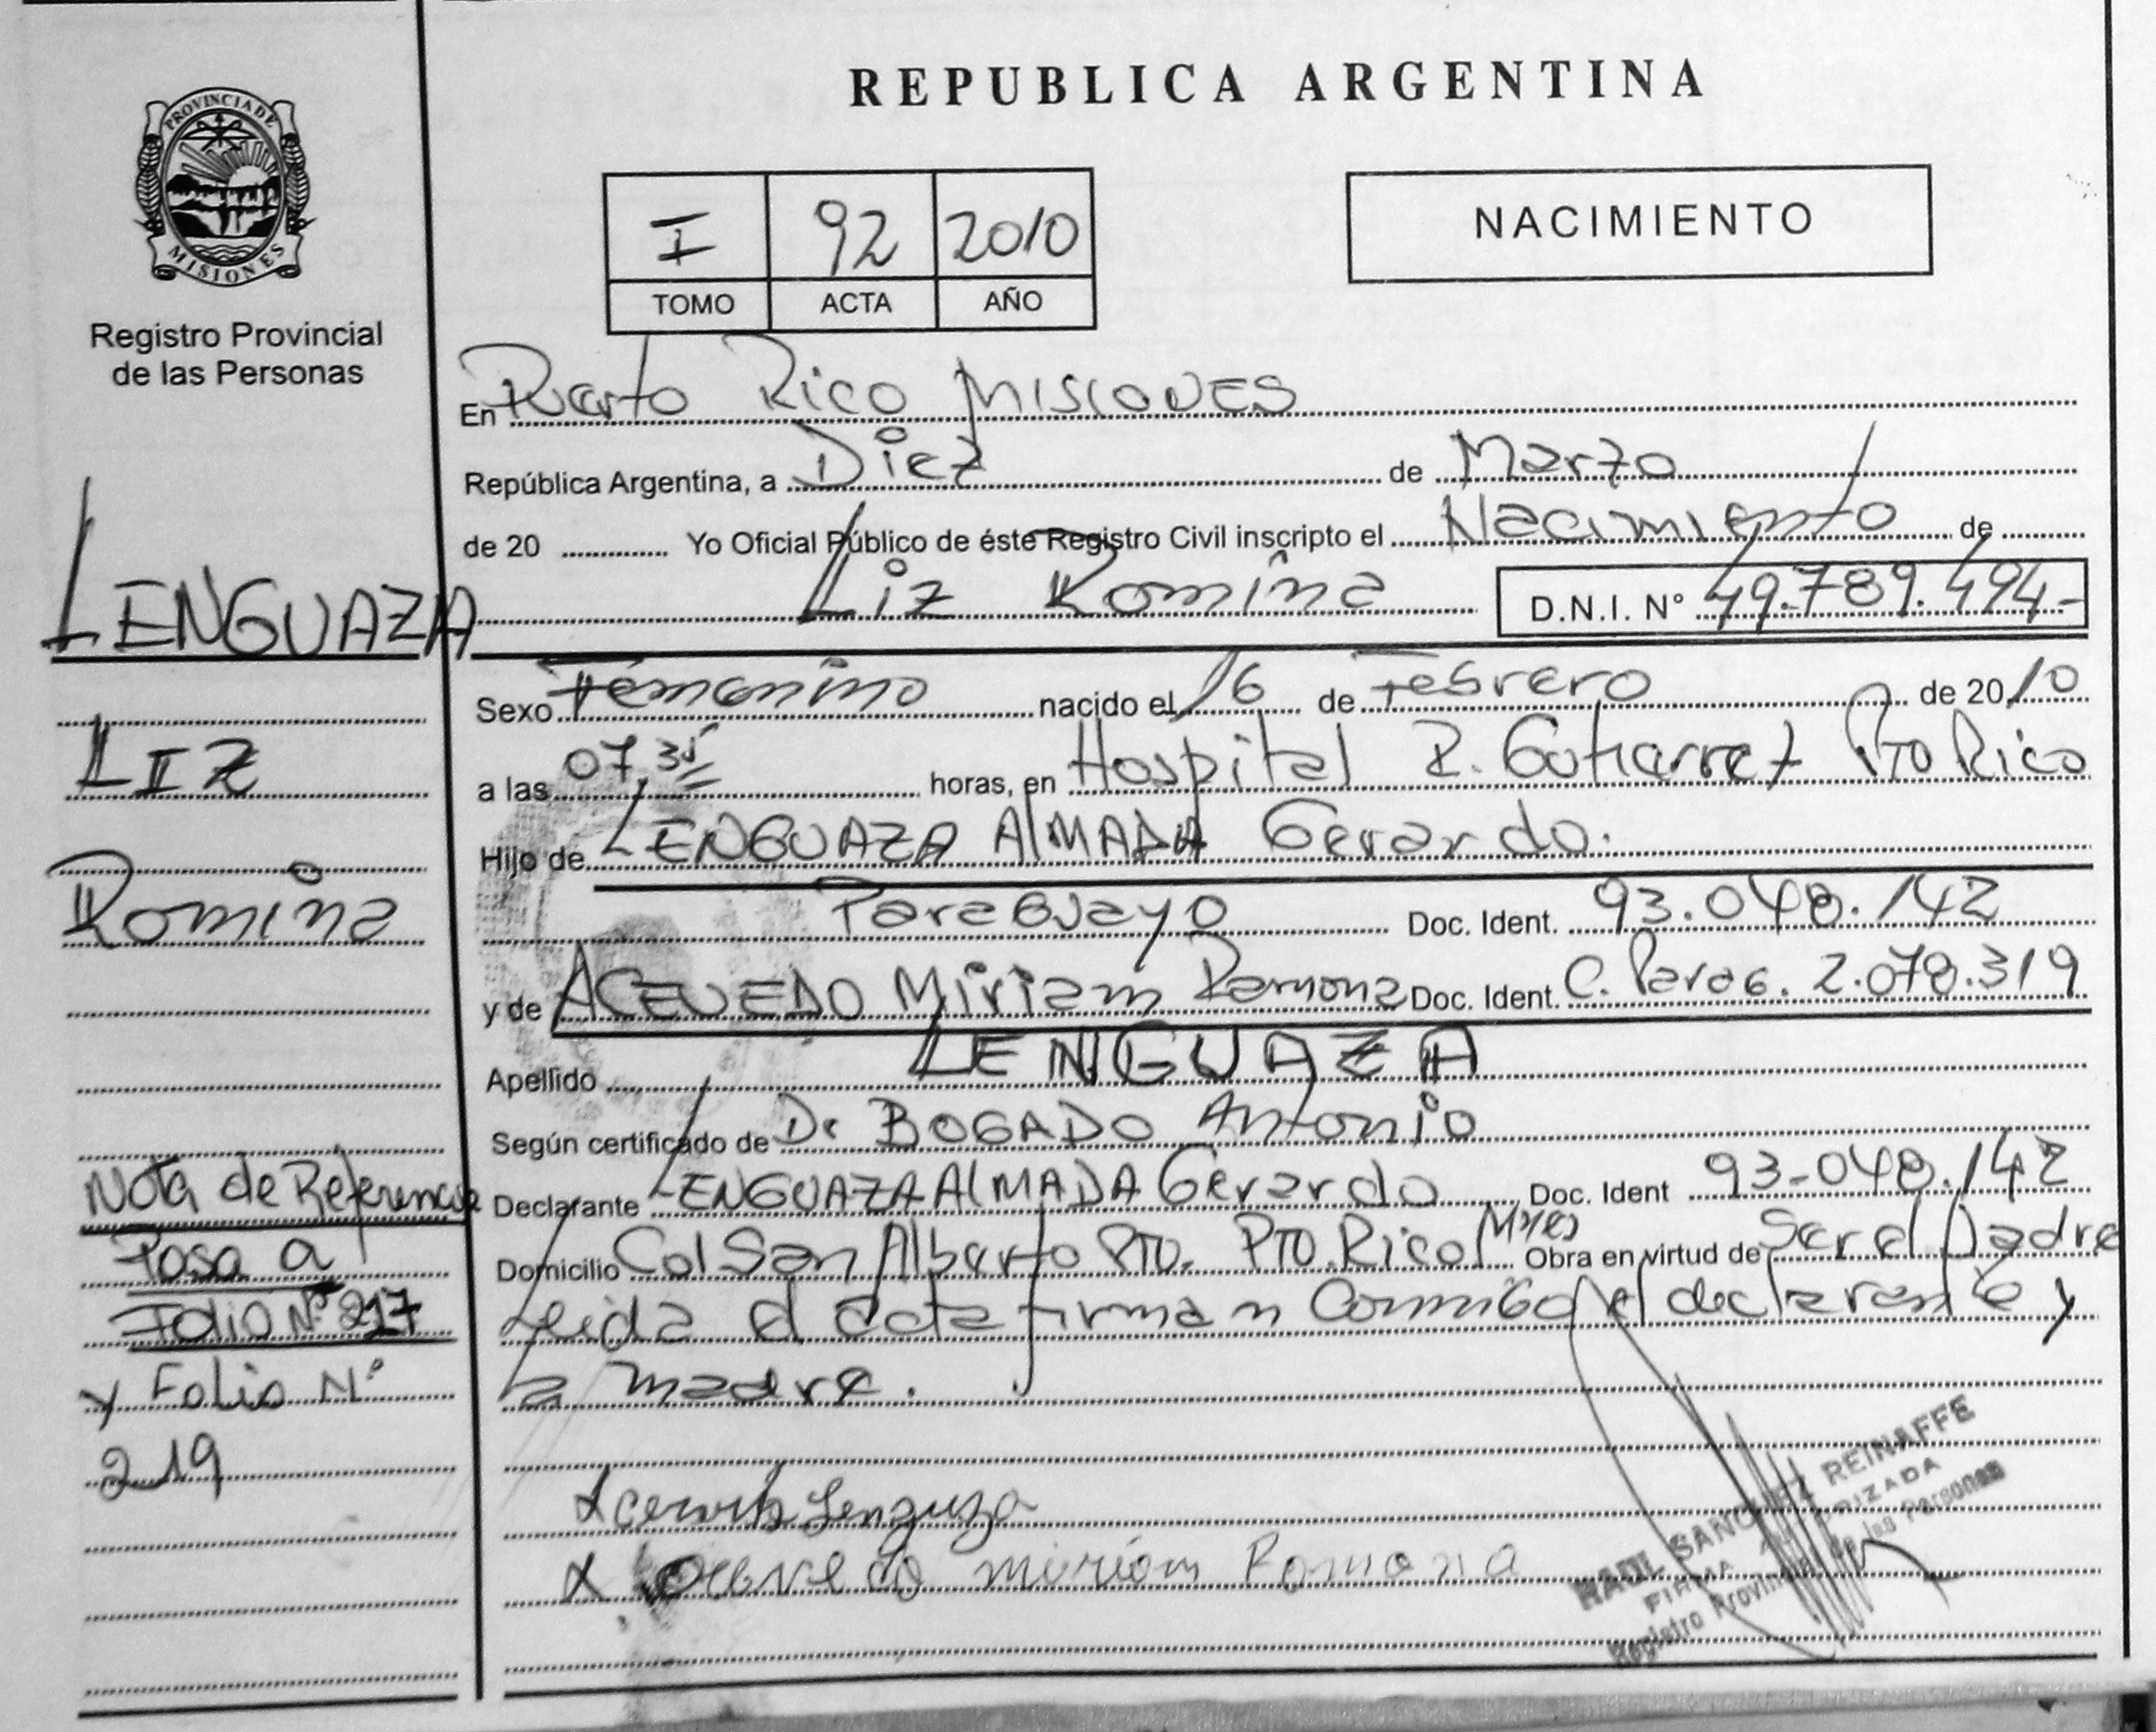 PROVINCIA DE
MISIONES
Registro Provincial
de las Personas
LENGUAZA
LIZ
Romina
Nota de Referencia
Pasa a
Folio Nº 217
y Folio Nº
219
REPUBLICA ARGENTINA
I 92 2010
TOMO ACTA AÑO
NACIMIENTO
En Puerto Rico MISIONES
República Argentina, a Diez de Marzo
de 20 Yo Oficial Público de éste Registro Civil inscripto el Nacimiento de
Liz Romina D.N.I. Nº 49.789.494-
Sexo Femenino nacido el 16 de Febrero de 2010
a las 07,35 horas, en Hospital R. Gutierrez Pto Rico
Hijo de LENGUAZA AlMADA Gerardo.
Paraguayo Doc. Ident. 93.048.142
y de ACEVEDO Miriam Ramona Doc. Ident. C. Parag. 2.078.319
Apellido LENGUAZA
Según certificado de Dr BOGADO Antonio
Declarante LENGUAZA AlMADA Gerardo Doc. Ident 93-048.142
Domicilio Col San Alberto Pto. Pto. Rico Mnes Obra en virtud de Ser el Padre
Leida el acta firman Conmigo el declarante y
la madre.
Lenguaza
Miriam Ramona
RAUL SANCHEZ REINAFFE
FIRMA AUTORIZADA
Registro Provincial de las Personas